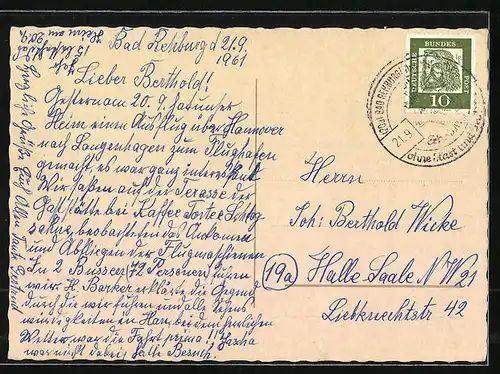 Bad Rehburg d 21.9.
1961
Lieber Berthold!
Gestern am 20. 9. hat unser
Heim einen Ausflug über Hannover
nach Langenhagen zum Flughafen
gemacht, es war ganz interessant
Wir saßen auf der Terasse der
Gaststätte bei Kaffee Torte
beobachteten das Ankommen
und Abfliegen der Flugmaschinen
In 2 Bussen 72 Personen fuhren
wir. H. Barker erklärte die Gegend
durch die wir fuhren und alle Sehens
würdigkeiten in Han, bei dem herrlichen
Wetter war die Fahrt prima!! Sascha
war nicht dabei hatte Besuch.
DEUTSCHE BUNDES POST
10
BAD REHBURG
21.9.
ohne Hast und
Herrn
Joh: Berthold Wicke
(19a) Halle-Saale NW21
Liebknechtstr 42